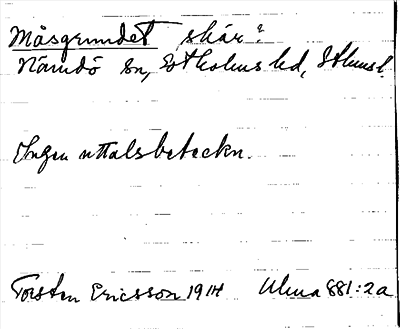 Måsgrundet skär?
Nämdö sn, Sotholms hd, Sthms l.
Ingen uttalsbeteckn.
Torsten Ericsson 1914 Ulma 881:2a